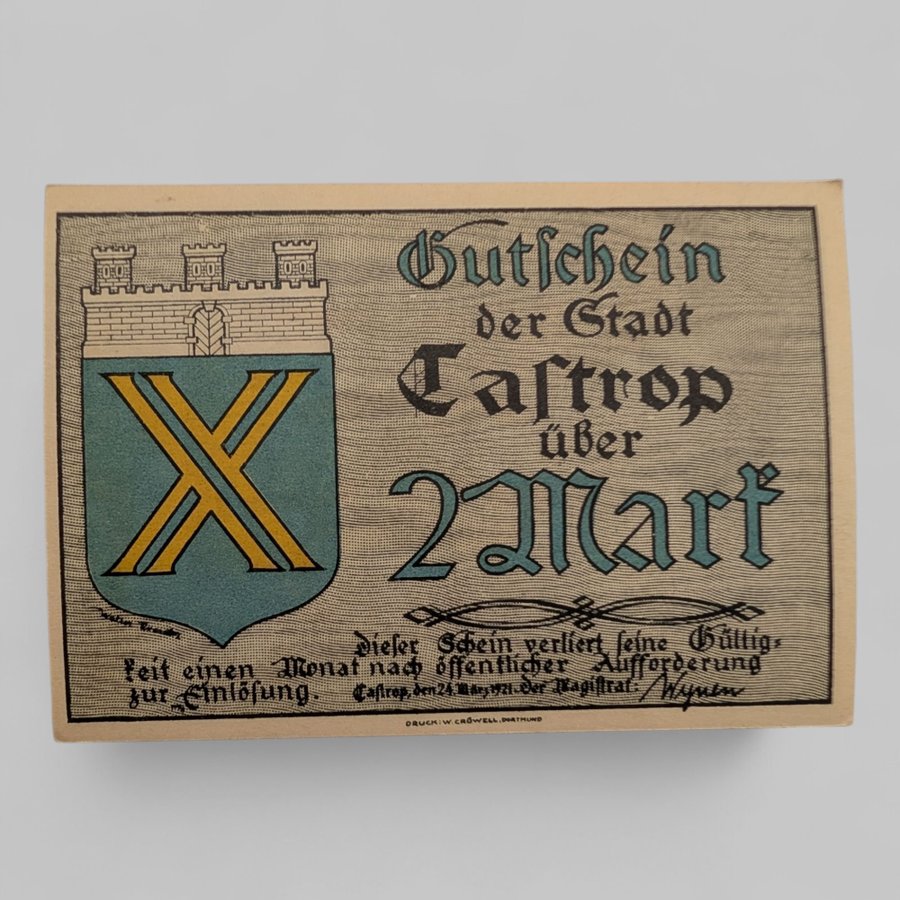 Gutſchein
der Stadt
Caſtrop
über
2 Mark
Dieſer Schein verliert ſeine Gültig-
keit einen Monat nach öffentlicher Aufforderung
zur Einlöſung. Caſtrop, den 24. März 1921. Der Magiſtrat: Wynen
DRUCK: W. CRÜWELL, DORTMUND